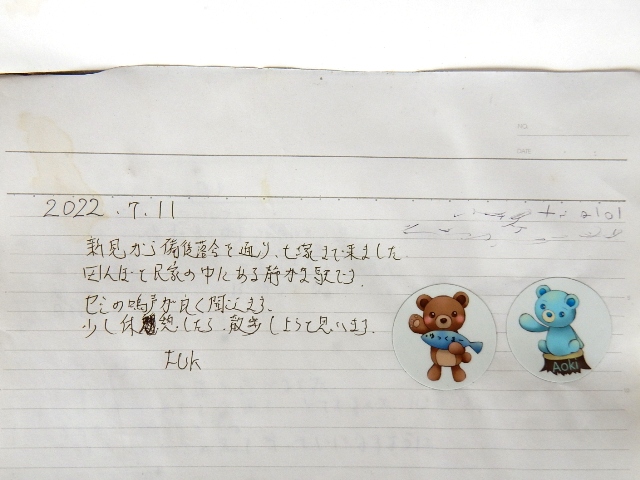 NO.
DATE
2022.7.11
新見から備後落合を通り、七塚まで来ました
田んぼと民家の中にある静かな駅です.
セミの鳴声が良く聞こえます.
少し休憩したら、散歩しようと思います.
Aoki